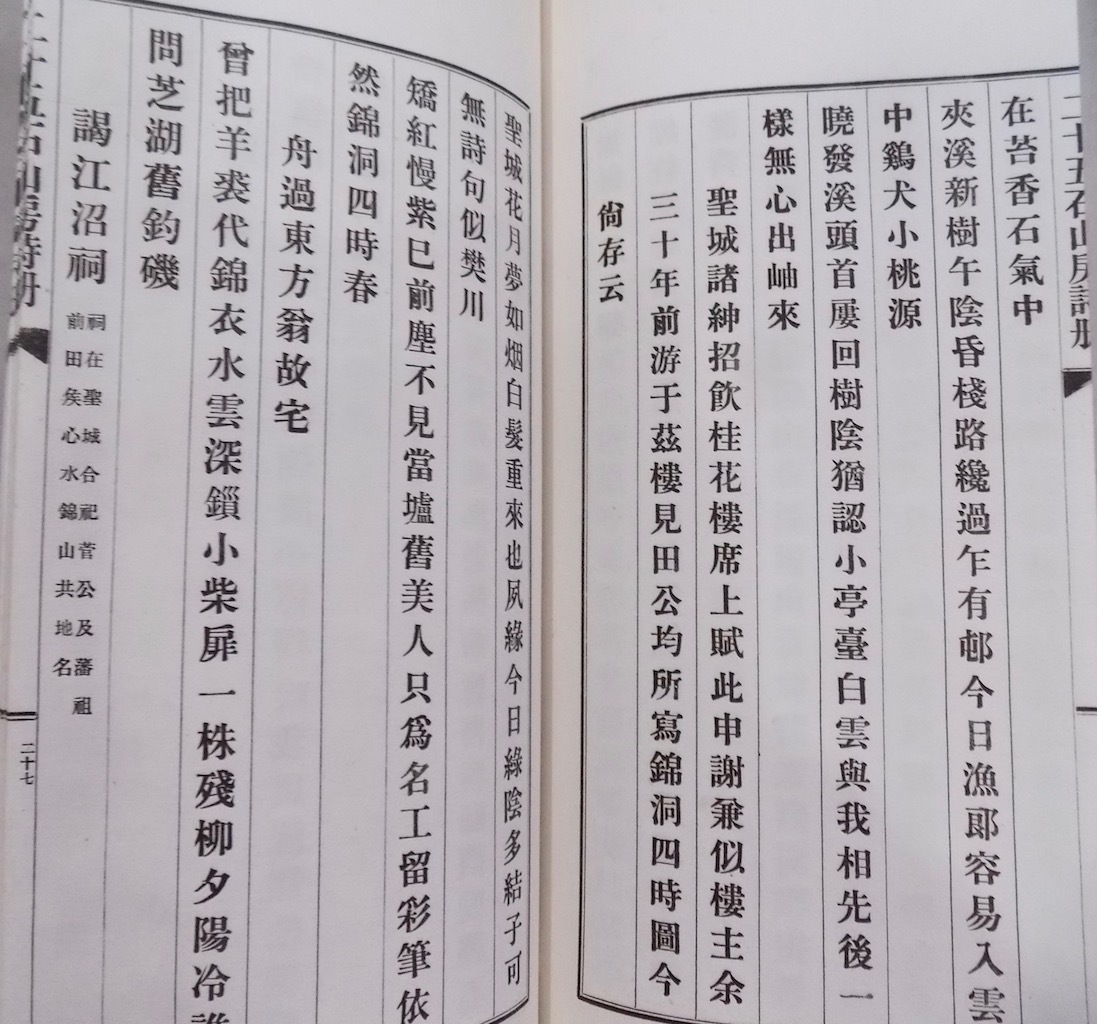 二十五石山房詩册
在苔香石氣中
夾溪新樹午陰昏棧路纔過乍有邨今日漁郞容易入雲
中鷄犬小桃源
曉發溪頭首屢回樹陰猶認小亭臺白雲與我相先後一
樣無心出岫來
聖城諸紳招飮桂花樓席上賦此申謝兼似樓主余
三十年前游于茲樓見田公均所寫錦洞四時圖今
尙存云
聖城花月夢如烟白髮重來也夙緣今日綠陰多結子可
無詩句似樊川
矯紅慢紫巳前塵不見當壚舊美人只爲名工留彩筆依
然錦洞四時春
舟過東方翁故宅
曾把羊裘代錦衣水雲深鎻小柴扉一株殘柳夕陽冷誰
問芝湖舊釣磯
謁江沼祠
祠在聖城合祀菅公及藩祖
前田矦心水錦山共地名
二十五石山房詩册
二十七